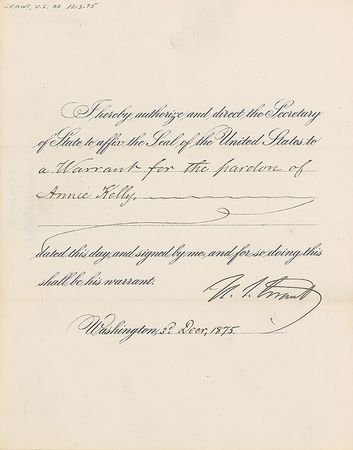 GRANT, U.S. DS 12-3-75
I hereby authorize and direct the Secretary
of State to affix the Seal of the United States to
a Warrant for the pardon of
Annie Kelly,
dated this day, and signed by me, and for so doing this
shall be his warrant.
U. S. Grant
Washington, 3d Decr, 1875.